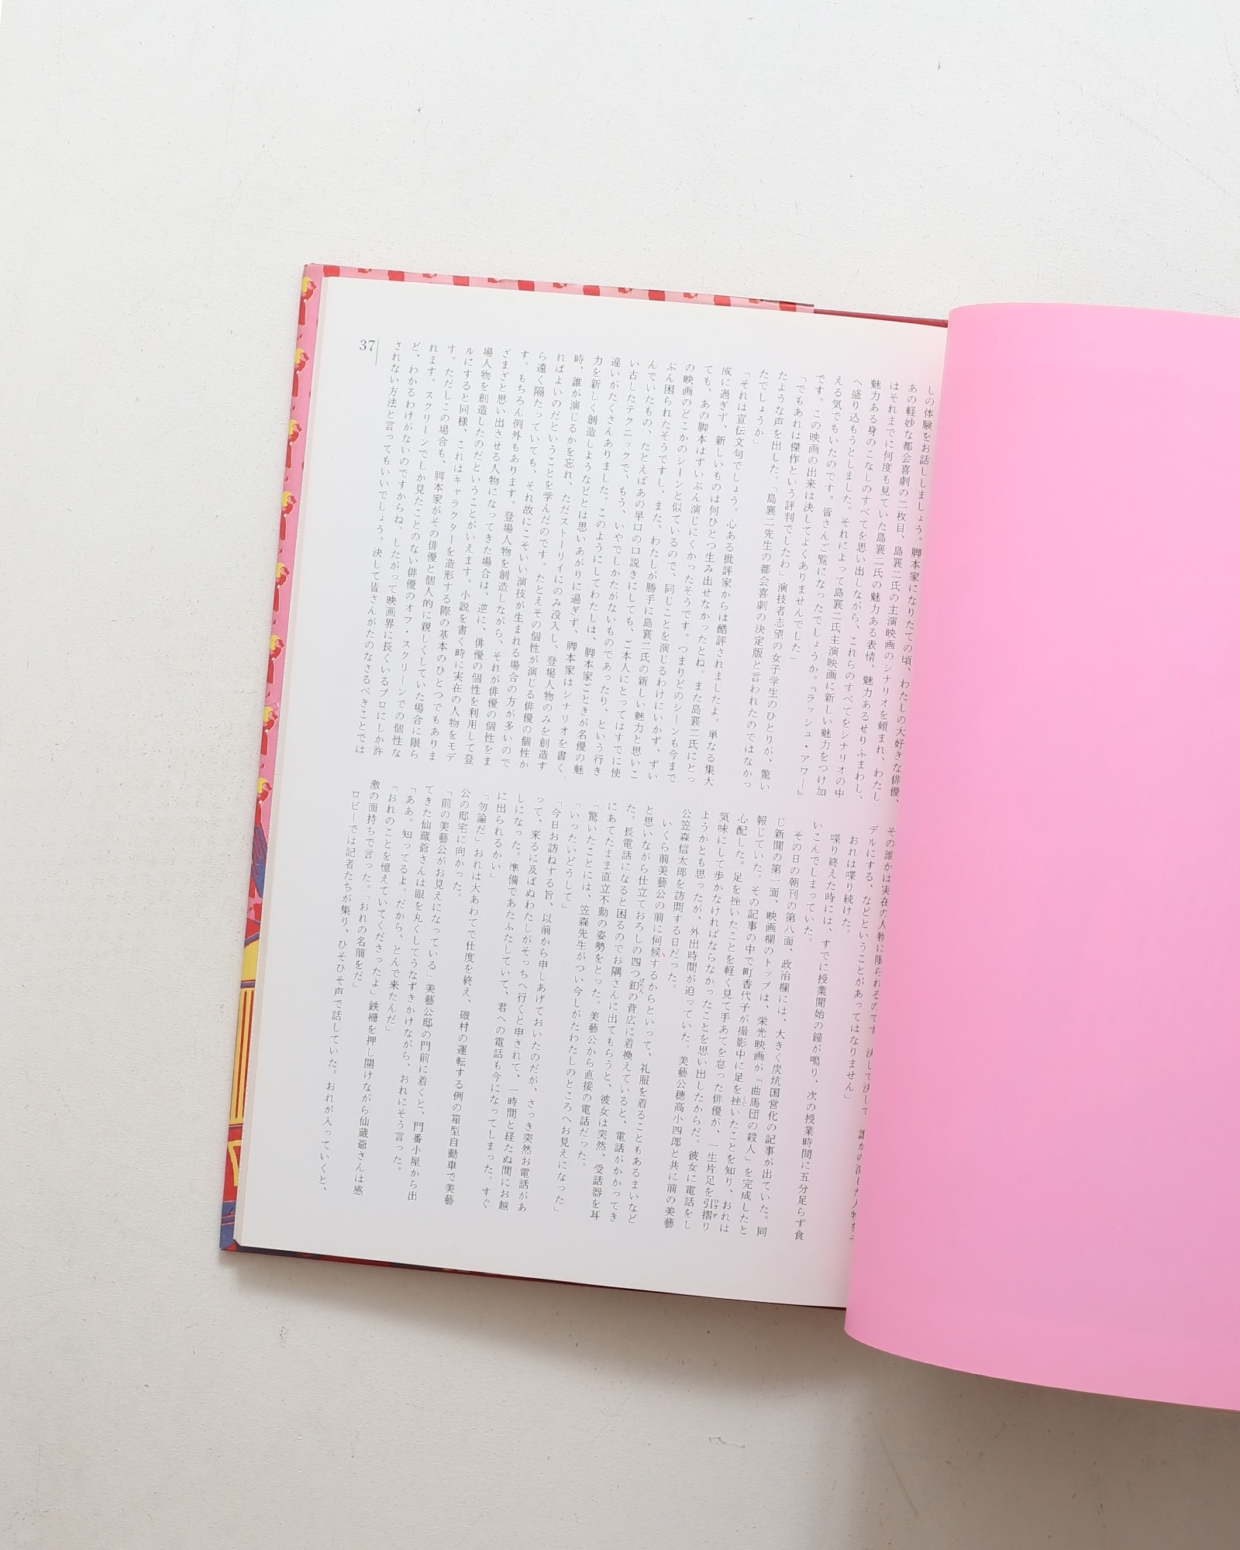 37
しの体験をお話ししましょう。脚本家になりたての頃、わたしの大好きな俳優、
あの軽妙な都会喜劇の二枚目、島襄二氏の主演映画のシナリオを頼まれ、わたし
はそれまでに何度も見ていた島襄二氏の魅力ある表情、魅力あるせりふまわし、
魅力ある身のこなしのすべてを思い出しながら、これらのすべてをシナリオの中
へ盛り込もうとしました。それによって島襄二氏主演映画に新しい魅力をつけ加
える気でもいたのです。皆さんご覧になったでしょうか。『ラッシュ・アワー』
です。この映画の出来は決してよくありませんでした」
「でもあれは傑作という評判でしたわ」演技者志望の女子学生のひとりが、驚い
たような声を出した。「島襄二先生の都会喜劇の決定版と言われたのではなかっ
たでしょうか」
「それは宣伝文句でしょう。心ある批評家からは酷評されましたよ。単なる集大
成に過ぎず、新しいものは何ひとつ生み出せなかったとね。また島襄二氏にとっ
ても、あの脚本はずいぶん演じにくかったそうです。つまりどのシーンも今まで
の映画のどこかのシーンと似ているので、同じことを演じるわけにいかず、ずい
ぶん困られたそうですし、また、わたしが勝手に島襄二氏の新しい魅力と思いこ
んでいたもの、たとえばあの早口の口説きにしても、ご本人にとってはすでに使
い古したテクニックで、もう、いやでしかたがないものであったり、という行き
違いがたくさんありました。このようにしてわたしは、脚本家ごときが名優の魅
力を新しく創造しようなどとは思いあがりに過ぎず、脚本家はシナリオを書く
時、誰が演じるかを忘れ、ただストーリイにのみ没入し、登場人物のみを創造す
ればよいのだということを学んだのです。たとえその個性が演じる俳優の個性か
ら遠く隔たっていても、それ故にこそいい演技が生まれる場合の方が多いので
す。もちろん例外もあります。登場人物を創造しながら、それが俳優の個性をま
ざまざと思い出させる人物になってきた場合は、逆に、俳優の個性を利用して登
場人物を創造したのだということがいえます。小説を書く時に実在の人物をモデ
ルにすると同様、これはキャラクターを造形する際の基本のひとつでもありま
す。ただしこの場合も、脚本家がその俳優と個人的に親しくしていた場合に限ら
れます。スクリーンでしか見たことのない俳優のオフ・スクリーンでの個性な
ど、わかるわけがないのですからね。したがって映画界に長くいるプロにしか許
されない方法と言ってもいいでしょう。決して皆さんがたのなさるべきことでは
その誰かは実在の人物に限られるのです。決して決して
デルにする、などということがあってはなりません」
おれは喋り続けた。
喋り終えた時には、すでに授業開始の鐘が鳴り、次の授業時間に五分足らず食
いこんでしまっていた。
その日の朝刊の第八面、政治欄には、大きく炭坑国営化の記事が出ていた。同
じ新聞の第一面、映画欄のトップは、栄光映画が「曲馬団の殺人」を完成したと
報じていた。その記事の中で町香代子が撮影中に足を挫いたことを知り、おれは
心配した。足を挫いたことを軽く見て手あてを怠った俳優が、一生片足を引摺り
気味にして歩かなければならなかったことを思い出したからだ。彼女に電話をし
ようかとも思ったが、外出時間が迫っていた。美藝公穂高小四郎と共に前の美藝
公笠森信太郎を訪問する日だった。
いくら前美藝公の前に伺候するからといって、礼服を着ることもあるまいなど
と思いながら仕立ておろしの四つ釦の背広に着換えていると、電話がかかってき
た。長電話になると困るのでお隅さんに出てもらうと、彼女は突然、受話器を耳
にあてたまま直立不動の姿勢をとった。美藝公から直接の電話だった。
「驚いたことには、笠森先生がつい今しがたわたしのところへお見えになった」
「いったいどうして」
「今日お訪ねする旨、以前から申しあげておいたのだが、さっき突然お電話があ
って、来るに及ばぬわたしがそっちへ行くと申されて、一時間と経たぬ間にお越
しになった。準備であたふたしていて、君への電話も今になってしまった。すぐ
に出られるかい」
「勿論だ」おれは大あわてで仕度を終え、磯村の運転する例の箱型自動車で美藝
公の邸宅に向かった。
「前の美藝公がお見えになっている」美藝公邸の門前に着くと、門番小屋から出
てきた仙蔵爺さんは眼を丸くしてうなずきかけながら、おれにそう言った。
「ああ。知ってるよ。だから、とんで来たんだ」
「おれのことを憶えていてくださったよ」鉄柵を押し開けながら仙蔵爺さんは感
激の面持ちで言った。「おれの名前をだ」
ロビーでは記者たちが集り、ひそひそ声で話していた。おれが入っていくと、